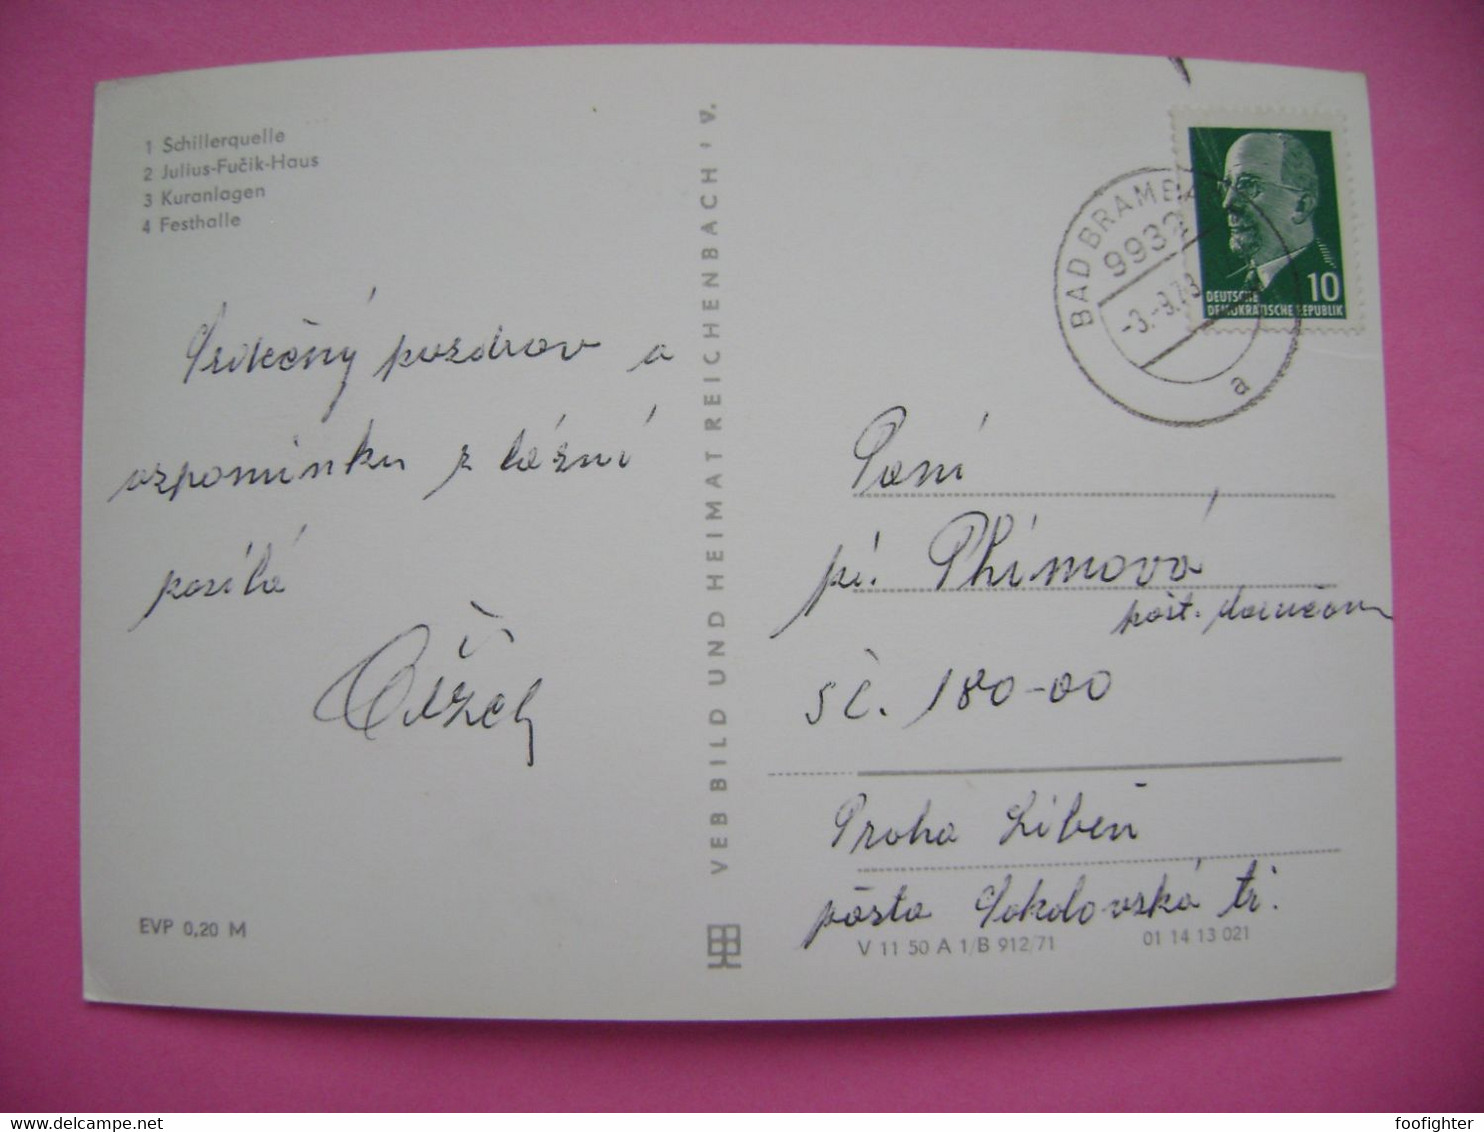 1 Schillerquelle
2 Julius-Fučik-Haus
3 Kuranlagen
4 Festhalle
Srdečný pozdrav a
vzpomínku z lázní
posílá
EVP 0,20 M
VEB BILD UND HEIMAT REICHENBACH i V.
BAD BRAMBA
993
-3.-9.73
a
10
DEUTSCHE
DEMOKRATISCHE REPUBLIK
Paní
pí. Plímová
pošt.
SČ. 180-00
Praha Libeň
pošta Sokolovská tř.
V 11 50 A 1/B 912/71
01 14 13 021
foofighter